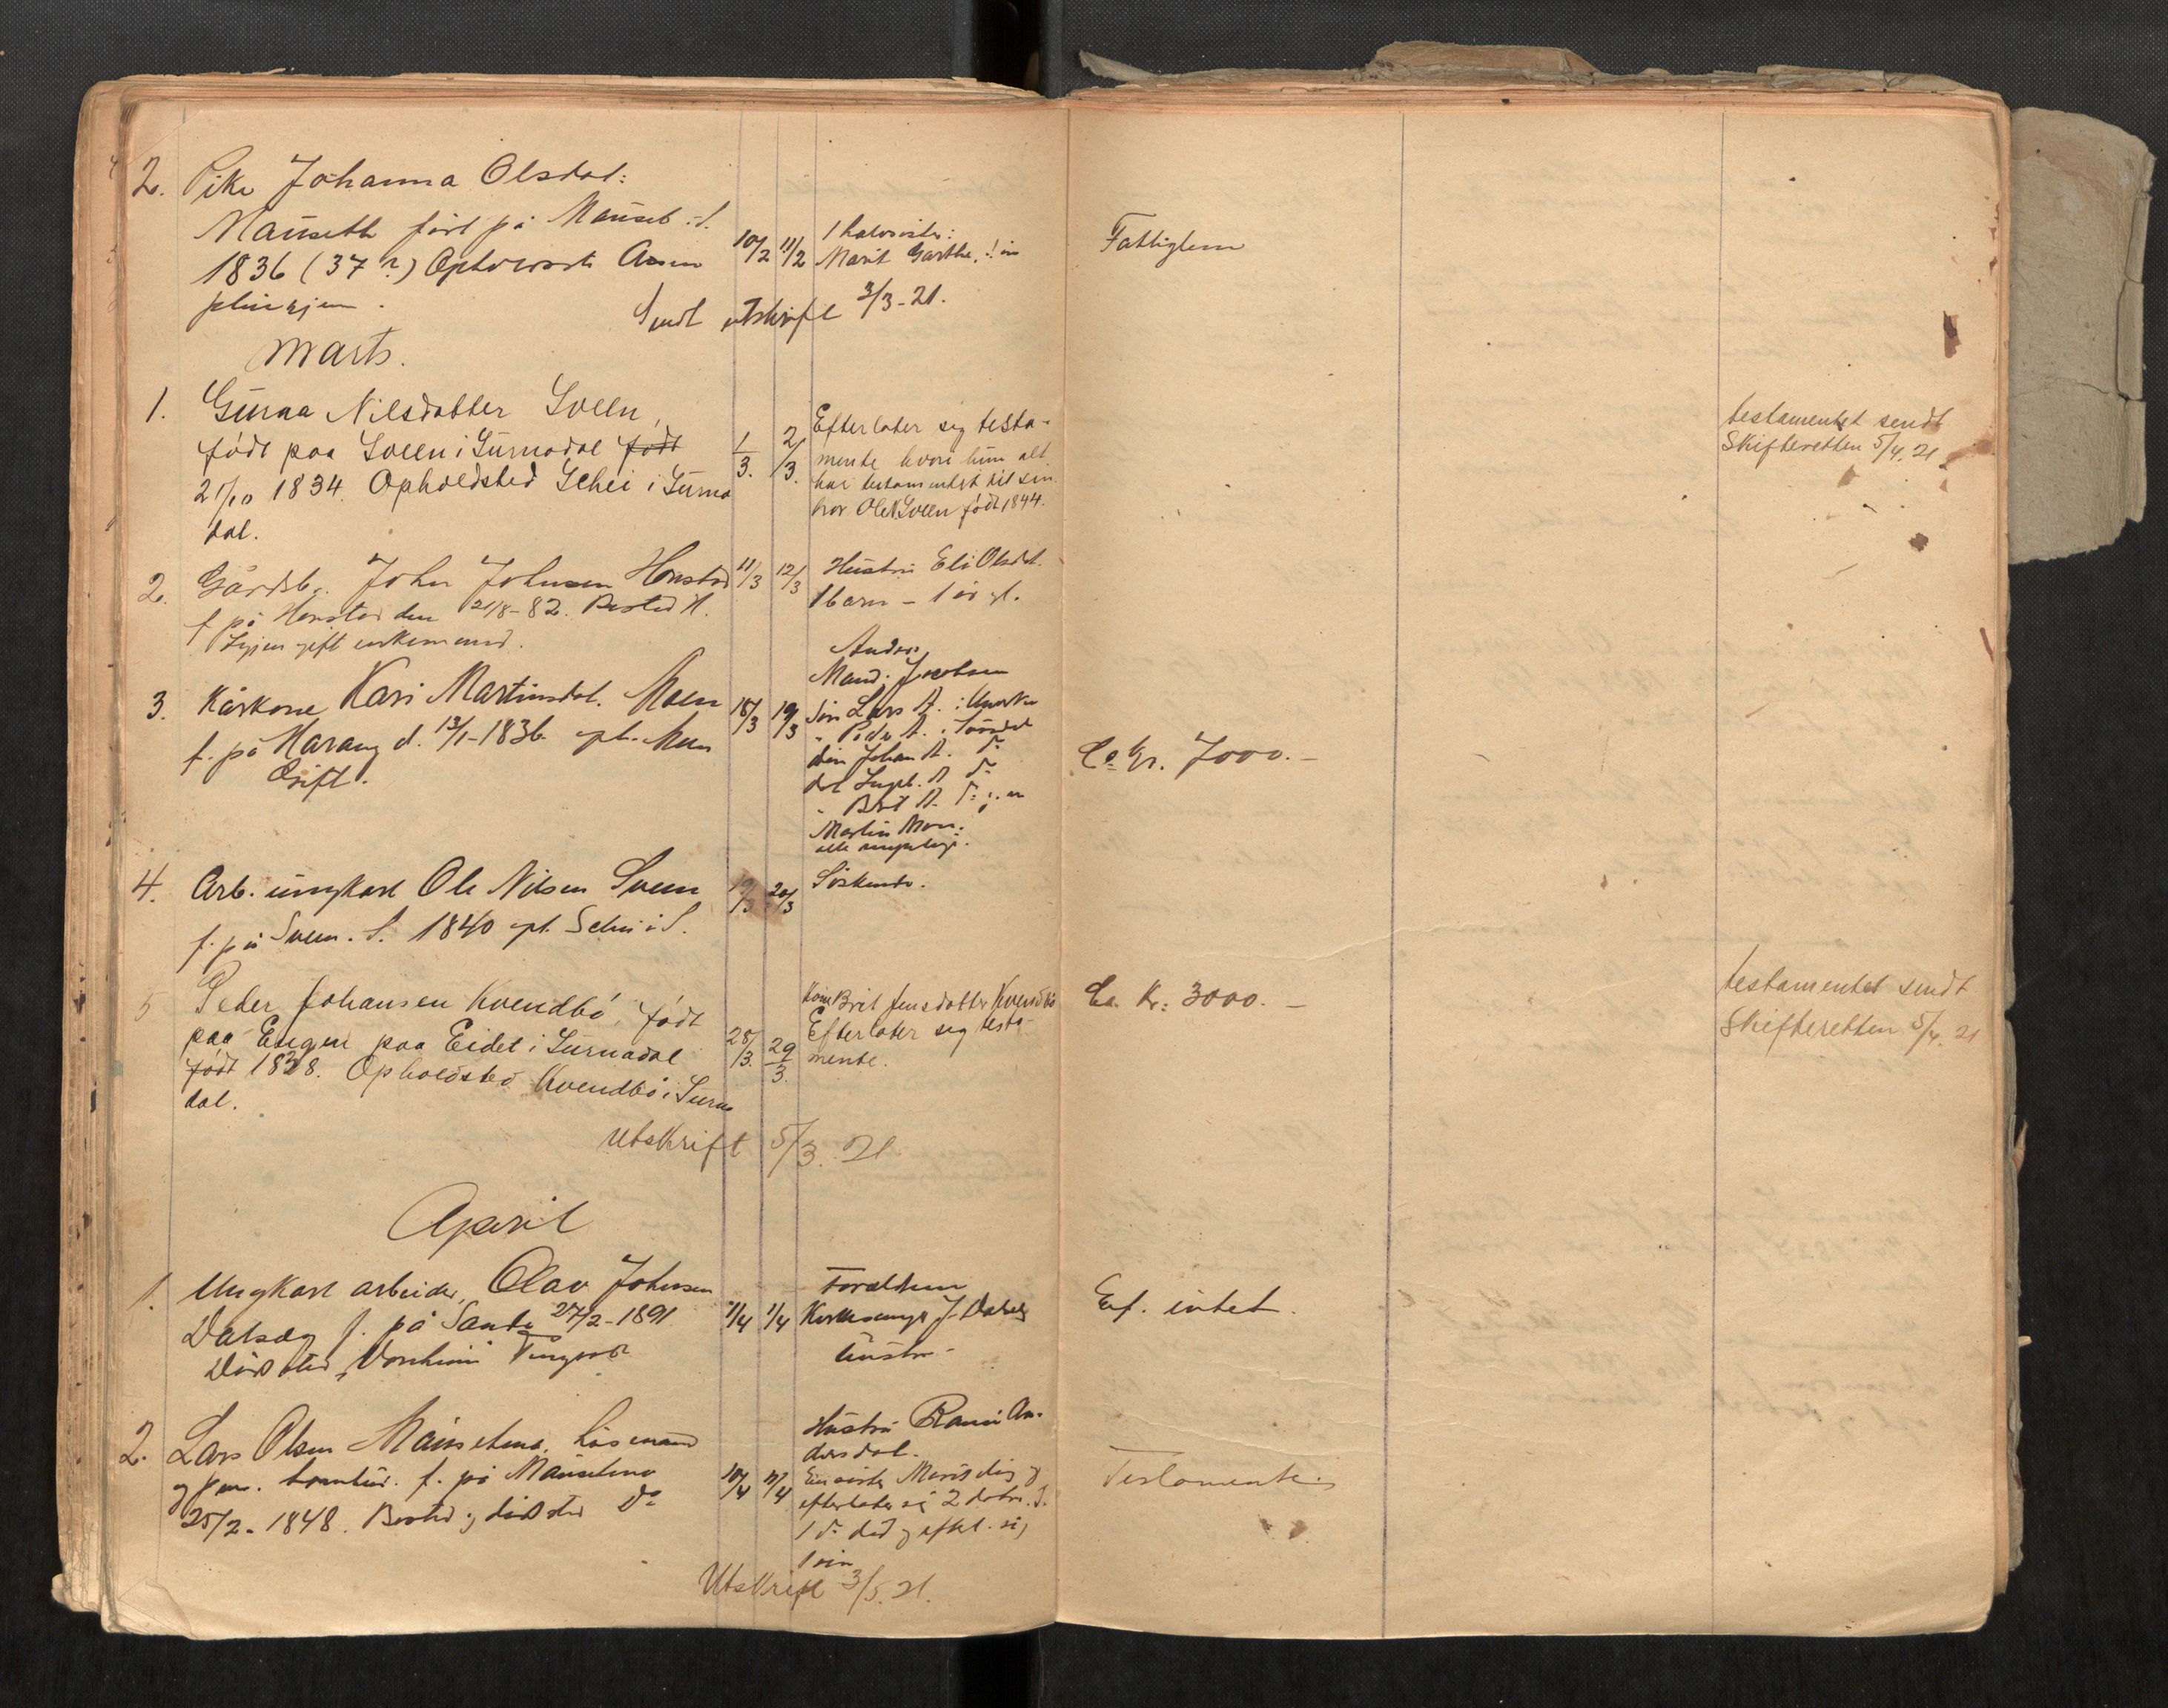 2. Pike Johanna Olsdat:
Mauseth född på Mauset i S.
1836 (37?) Opholdssted Aasen
pleiehjem.
10/2 11/2
1 halvsøster:
Marit Garthe
Fattiglem
Sendt utskrift 3/3-21.
Marts.
1. Gurna Nilsdatter Sveen,
født paa Sveen i Surnadal født
21/10 1834. Opholdsted Schei i Surna
dal.
1/3. 2/3.
Efterlater sig testa-
mente hvori hun alt
har testamentet til sin
bror Ole N Sveen født 1844.
testamentet sendt
Skifteretten 5/4. 21
2. Gårdbr. John Johnsen Honstad
f. på Honstad den 21/8-82. Bosted H.
Igjen gift enkemand.
11/3 12/3
Hustru Eli Olsdat.
1 barn - 1 år gl.
3. Kårkone Kari Martinsdat. Moen
f. på Harang d. 13/1-1836 opt. Moen
Gift.
18/3 19/3
Mand: Jacobsen
Søn Lars A. i
" Peder A. i
Søn Johan A. do
dat Ingeb. A do
" Brit A. do
Martin Moen:
alle myndige.
Ca Kr. 7000.-
4. Arb. ungkarl Ole Nilsen Sveen
f. på Sveen. S. 1840 opt. Schei i S.
19/3 20/3
Söskende.
5 Peder Johansen Kvendbø, født
paa Engen paa Eidet i Surnadal
født 1828. Opholdsted Kvendbø i Surna
dal.
28/3. 29/3.
Kone Brit Jensdatter Kvendbø
Efterlater sig testa-
mente.
Ca. Kr: 3000.-
testamentet sendt
Skifteretten 5/4. 21
Utskrift 5/3. 21
April
1. Ungkarl arbeider, Olav Johnsen
Dalsæg f. på Sande 27/2-1891
Dödsted, Tingvold
1/4 1/4
Forældrene
Kirkesanger J. Dalsæg
Hustru -
Eft. intet.
2. Lars Olsen Mausetmo, Husmand
f. på Mausetmo
25/2-1848. Bosted og dödsted do
10/4 11/4
Hustru Ranei An-
dersdat.
En søster Marit død og
efterlater sig 2 døtre.
1 do död og eftel. sig
1 sön
Testamente
Utskrift 3/5. 21.